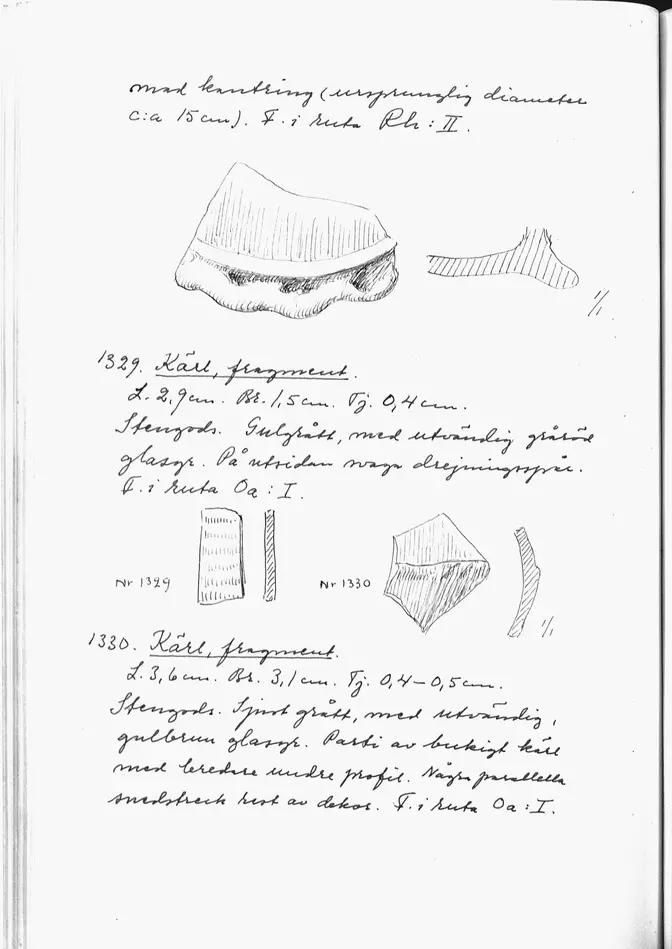 med kantring (ursprunglig diameter
c:a 15 cm). F. i ruta Rh : II.
1/1
1329. Kärl, fragment.
L. 2,9 cm. Br. 1,5 cm. Tj. 0,4 cm.
Stengods. Gulgrått, med utvändig gråröd
glasyr. På utsidan svaga drejningsspår.
F. i ruta Oa : I.
Nr 1329
Nr 1330
1/1
1330. Kärl, fragment.
L. 3,6 cm. Br. 3,1 cm. Tj. 0,4–0,5 cm.
Stengods. Ljust grått, med utvändig,
gulbrun glasyr. Parti av bukigt kärl
med bredare undre profil. Några parallella
snedstreck rest av dekor. F. i ruta Oa : I.